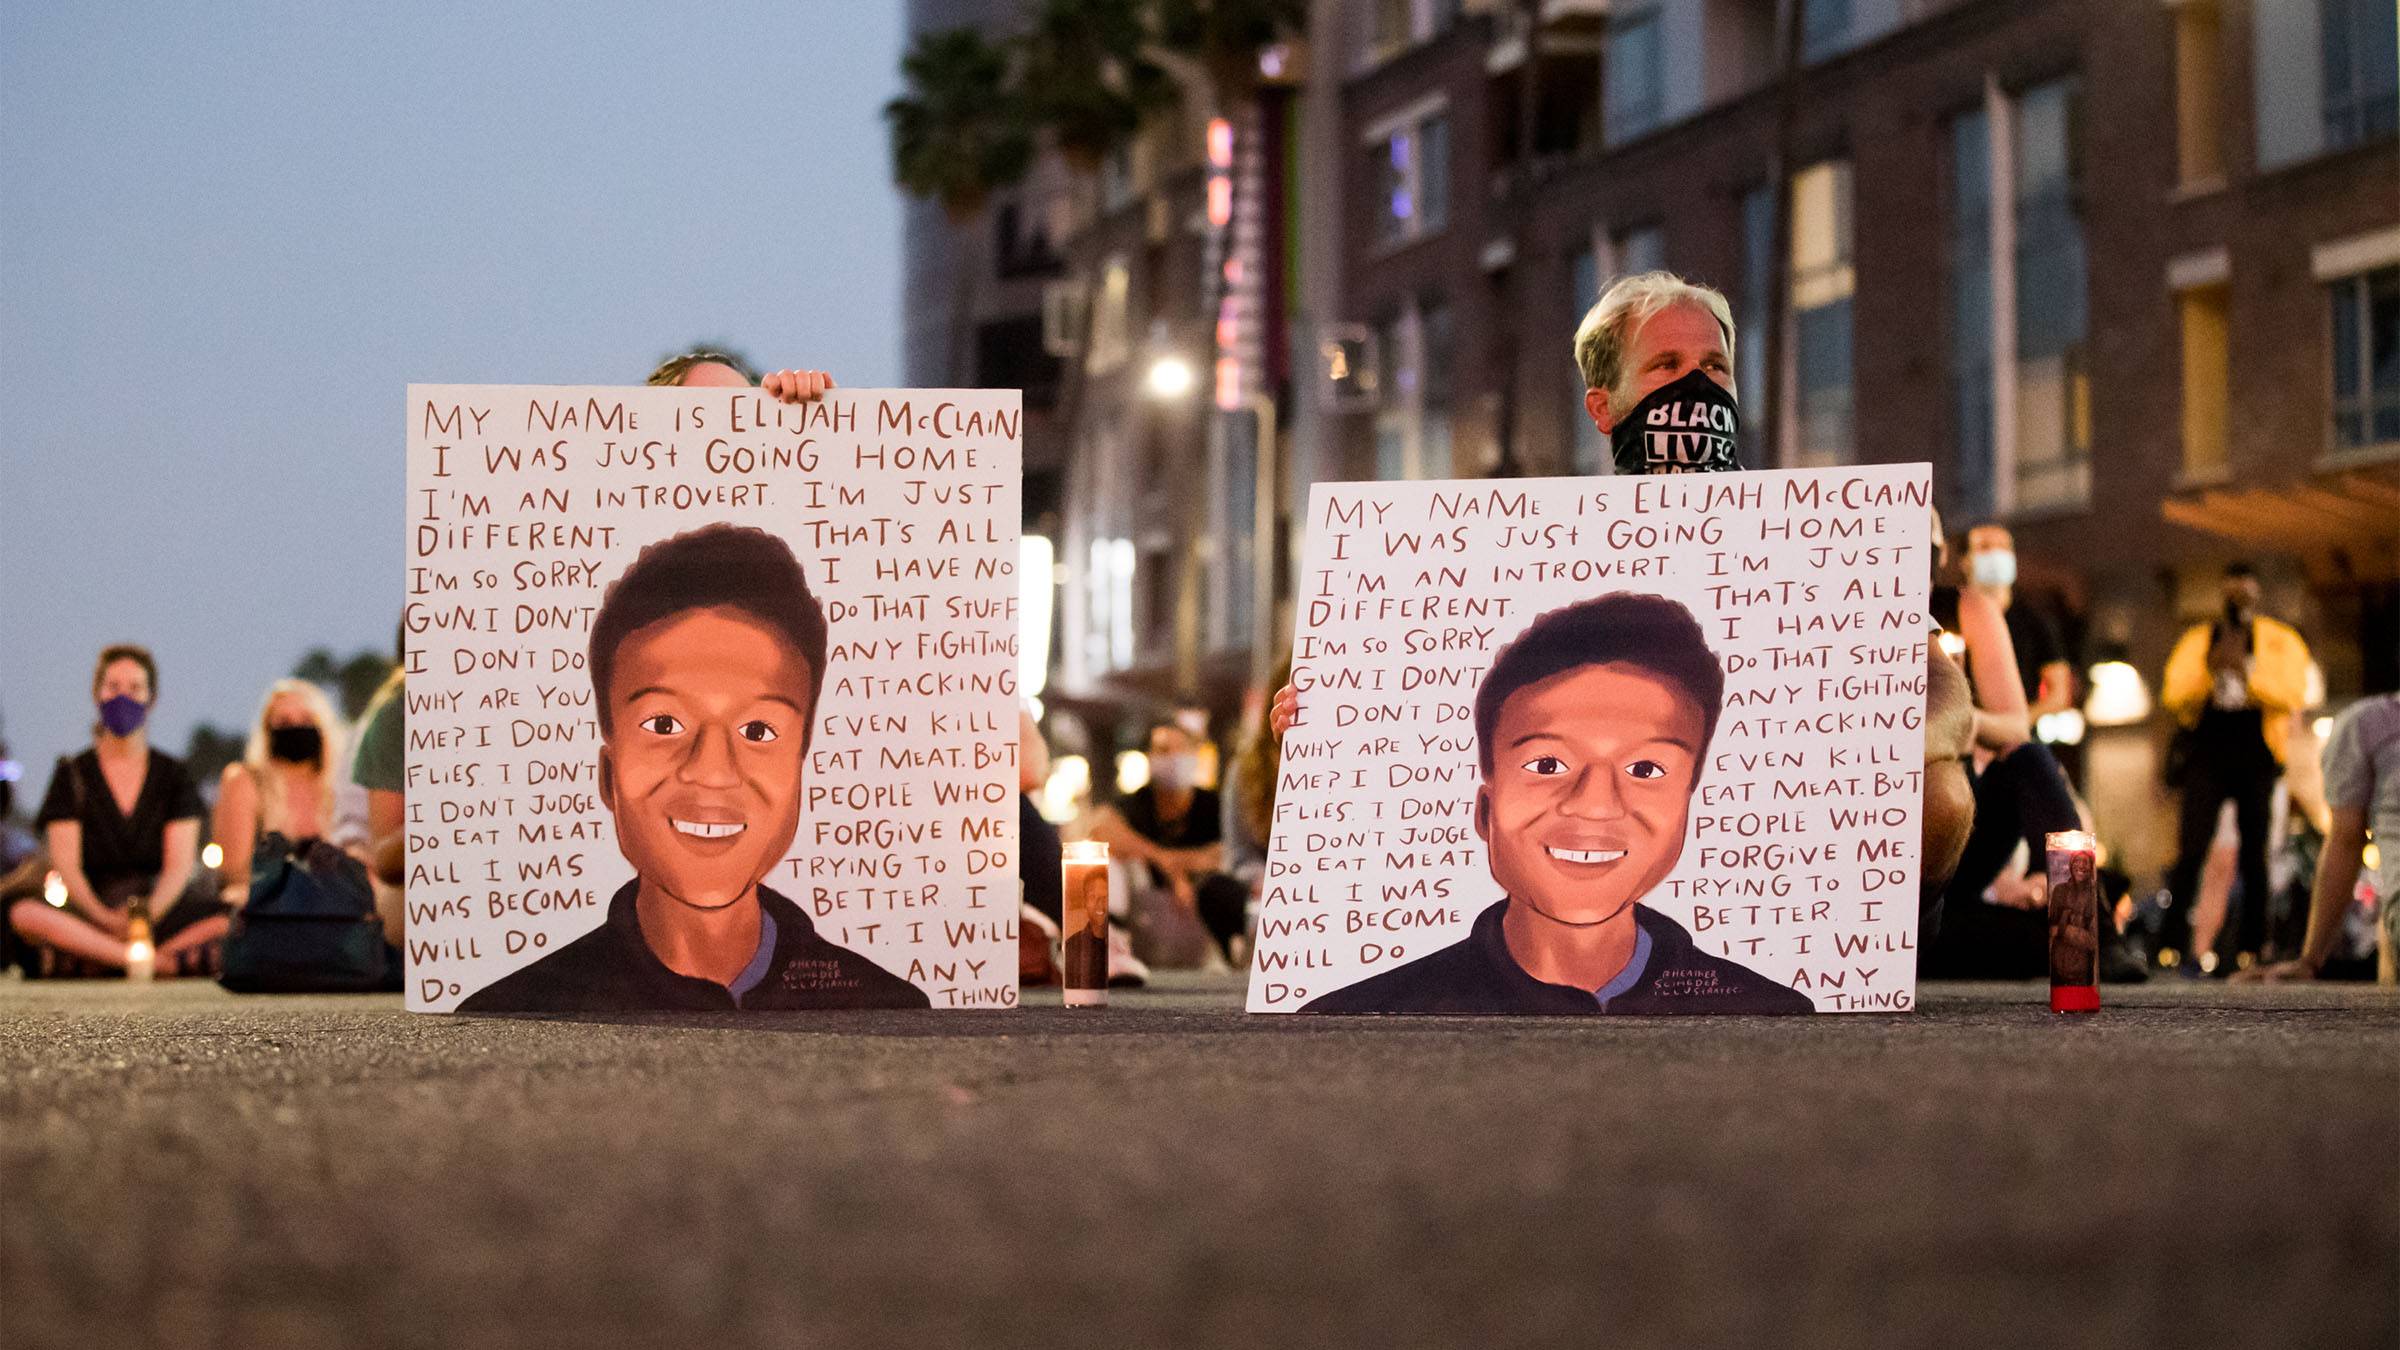 MY NAME IS ELIJAH McCLAIN.
I WAS JUST GOING HOME.
I'M AN INTROVERT. I'M JUST
DIFFERENT. THAT'S ALL.
I'M SO SORRY. I HAVE NO
GUN. I DON'T DO THAT STUFF.
I DON'T DO ANY FIGHTING
WHY ARE YOU ATTACKING
ME? I DON'T EVEN KILL
FLIES. I DON'T EAT MEAT. BUT
I DON'T JUDGE PEOPLE WHO
DO EAT MEAT. FORGIVE ME.
ALL I WAS TRYING TO DO
WAS BECOME BETTER. I
WILL DO IT. I WILL
DO ANY
THING
@HEATHER
SCIMEDER
ILLUSTRATES.
BLACK
LIVES
MY NAME IS ELIJAH McCLAIN
I WAS JUST GOING HOME.
I'M AN INTROVERT. I'M JUST
DIFFERENT. THAT'S ALL.
I'M SO SORRY. I HAVE NO
GUN. I DON'T DO THAT STUFF.
I DON'T DO ANY FIGHTING
WHY ARE YOU ATTACKING
ME? I DON'T EVEN KILL
FLIES. I DON'T EAT MEAT. BUT
I DON'T JUDGE PEOPLE WHO
DO EAT MEAT. FORGIVE ME.
ALL I WAS TRYING TO DO
WAS BECOME BETTER. I
WILL DO IT. I WILL
DO ANY
THING
@HEATHER
SCIMEDER
ILLUSTRATES.